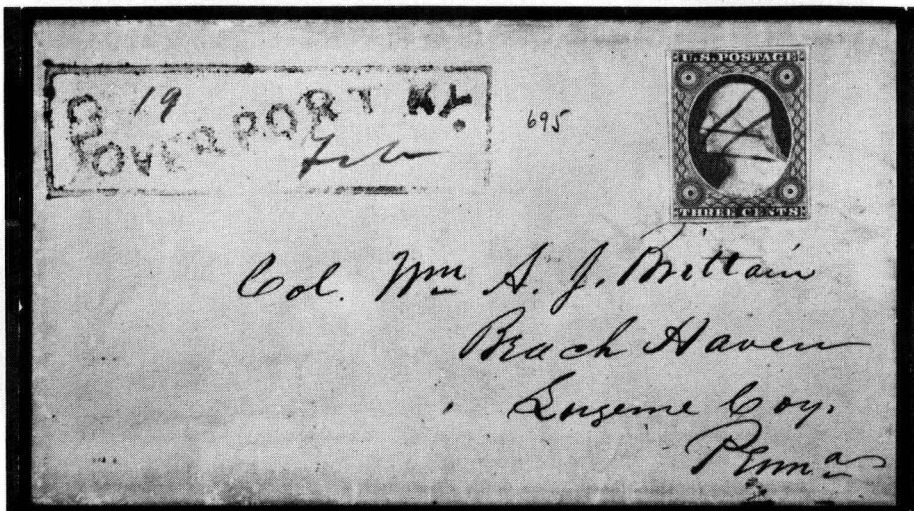 19
CLOVERPORT KY.
Feb
695
U.S. POSTAGE
THREE CENTS
Col. Wm A. J. Brittain
Beach Haven
Luzerne Coy.
Penna